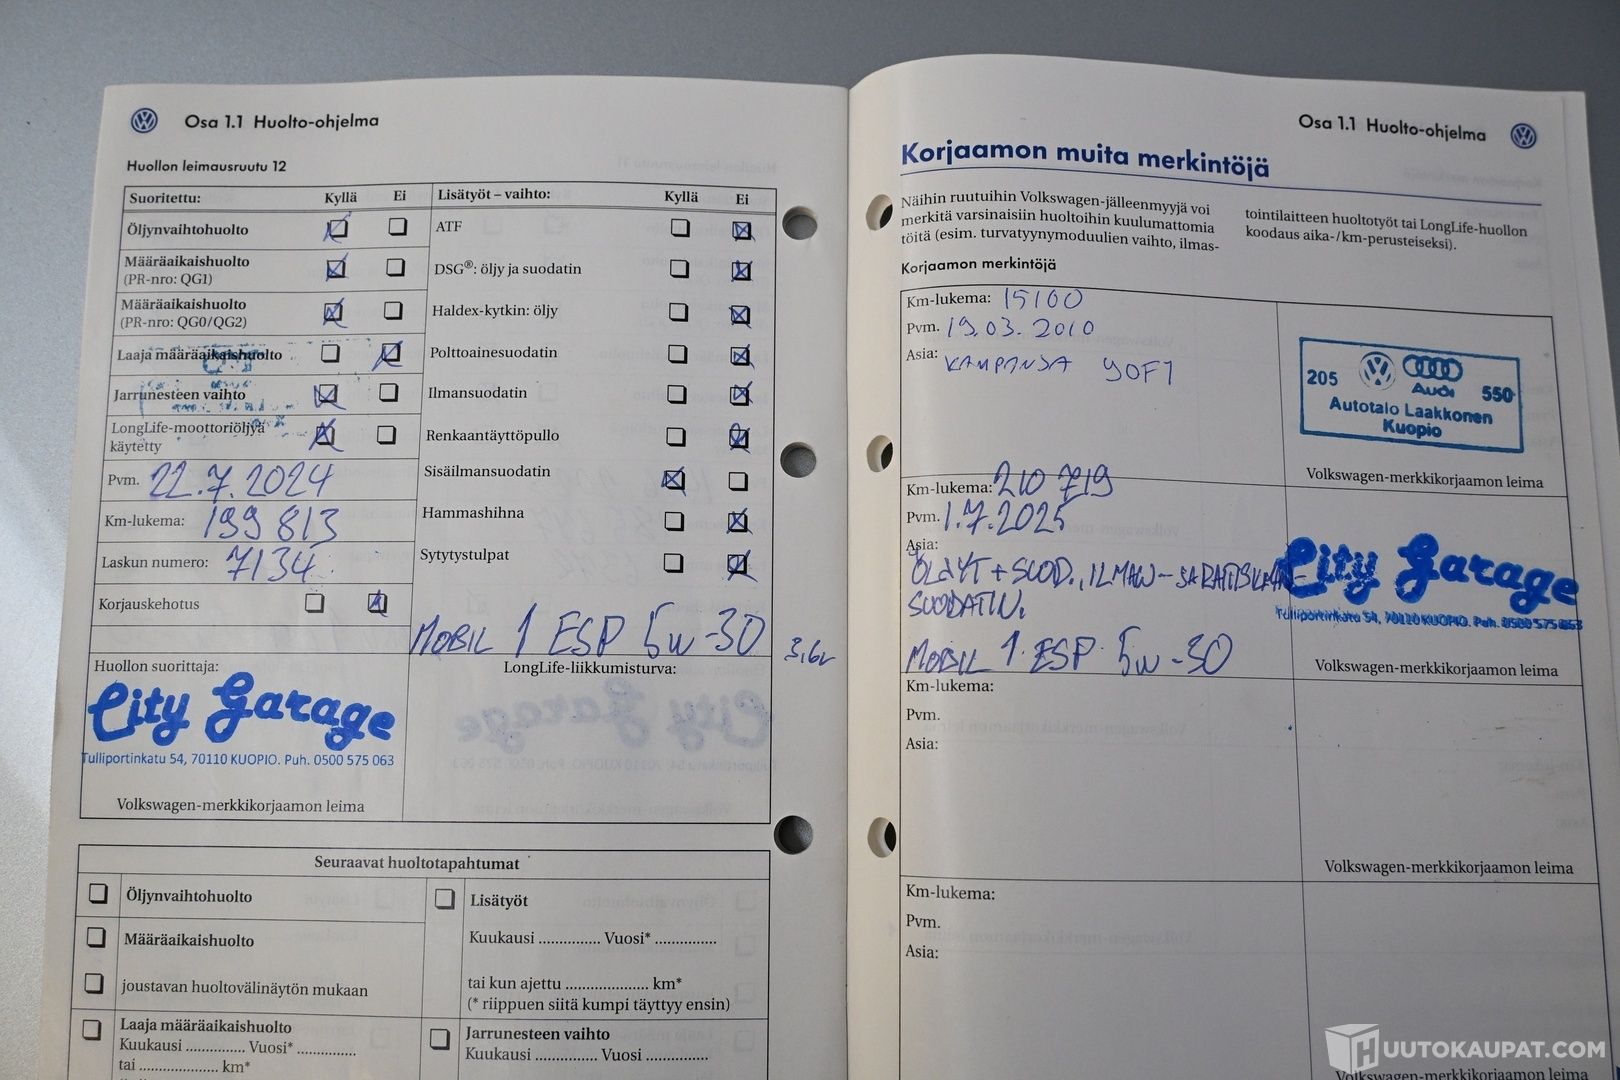 Osa 1.1 Huolto-ohjelma
Huollon leimausruutu 12
Suoritettu: Kyllä Ei
Öljynvaihtohuolto
Määräaikaishuolto
(PR-nro: QG1)
Määräaikaishuolto
(PR-nro: QG0/QG2)
Laaja määräaikaishuolto
Jarrunesteen vaihto
LongLife-moottoriöljyä
käytetty
Pvm. 22.7.2024
Km-lukema: 199 813
Laskun numero: 7134
Korjauskehotus
Huollon suorittaja:
City Garage
Tulliportinkatu 54, 70110 KUOPIO. Puh. 0500 575 063
Volkswagen-merkkikorjaamon leima
Lisätyöt – vaihto: Kyllä Ei
ATF
DSG®: öljy ja suodatin
Haldex-kytkin: öljy
Polttoainesuodatin
Ilmansuodatin
Renkaantäyttöpullo
Sisäilmansuodatin
Hammashihna
Sytytystulpat
MOBIL 1 ESP 5W-30 3,6L
LongLife-liikkumisturva:
Seuraavat huoltotapahtumat
Öljynvaihtohuolto
Määräaikaishuolto
joustavan huoltovälinäytön mukaan
Laaja määräaikaishuolto
Kuukausi .............. Vuosi* ..............
tai .................... km*
Lisätyöt
Kuukausi ............... Vuosi* ...............
tai kun ajettu .................... km*
(* riippuen siitä kumpi täyttyy ensin)
Jarrunesteen vaihto
Kuukausi ............... Vuosi ...............
Osa 1.1 Huolto-ohjelma
Korjaamon muita merkintöjä
Näihin ruutuihin Volkswagen-jälleenmyyjä voi
merkitä varsinaisiin huoltoihin kuulumattomia
töitä (esim. turvatyynymoduulien vaihto, ilmas-
tointilaitteen huoltotyöt tai LongLife-huollon
koodaus aika-/km-perusteiseksi).
Korjaamon merkintöjä
Km-lukema: 15100
Pvm. 19.03.2010
Asia: KAMPANJA
205 Audi 550
Autotalo Laakkonen
Kuopio
Volkswagen-merkkikorjaamon leima
Km-lukema: 210 719
Pvm. 1.7.2025
Asia:
ÖLJYT + SUOD., ILMAN-
SUODATIN.
MOBIL 1 ESP 5W-30
City Garage
Tulliportinkatu 54, 70110 KUOPIO. Puh. 0500 575 063
Volkswagen-merkkikorjaamon leima
Km-lukema:
Pvm.
Asia:
Volkswagen-merkkikorjaamon leima
Km-lukema:
Pvm.
Asia:
Volkswagen-merkkikorjaamon leima
HUUTOKAUPAT.COM